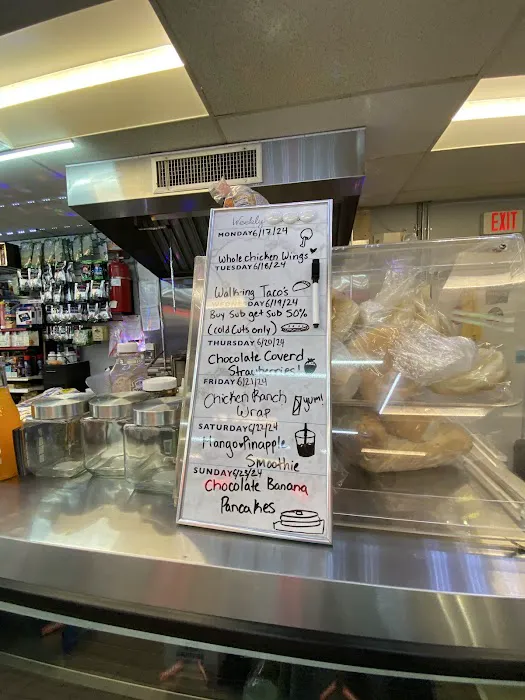 Weekly
MONDAY 6/17/24
Whole chicken Wings
TUESDAY 6/18/24
Walking Taco's
WEDNESDAY 6/19/24
Buy Sub get Sub 50%
(cold Cuts only)
THURSDAY 6/20/24
Chocolate Coverd
Strawberries!
FRIDAY 6/21/24
Chicken Ranch
Wrap
yum!
SATURDAY 6/22/24
Mango Pinapple
Smoothie
SUNDAY 6/23/24
Chocolate Banana
Pancakes
EXIT